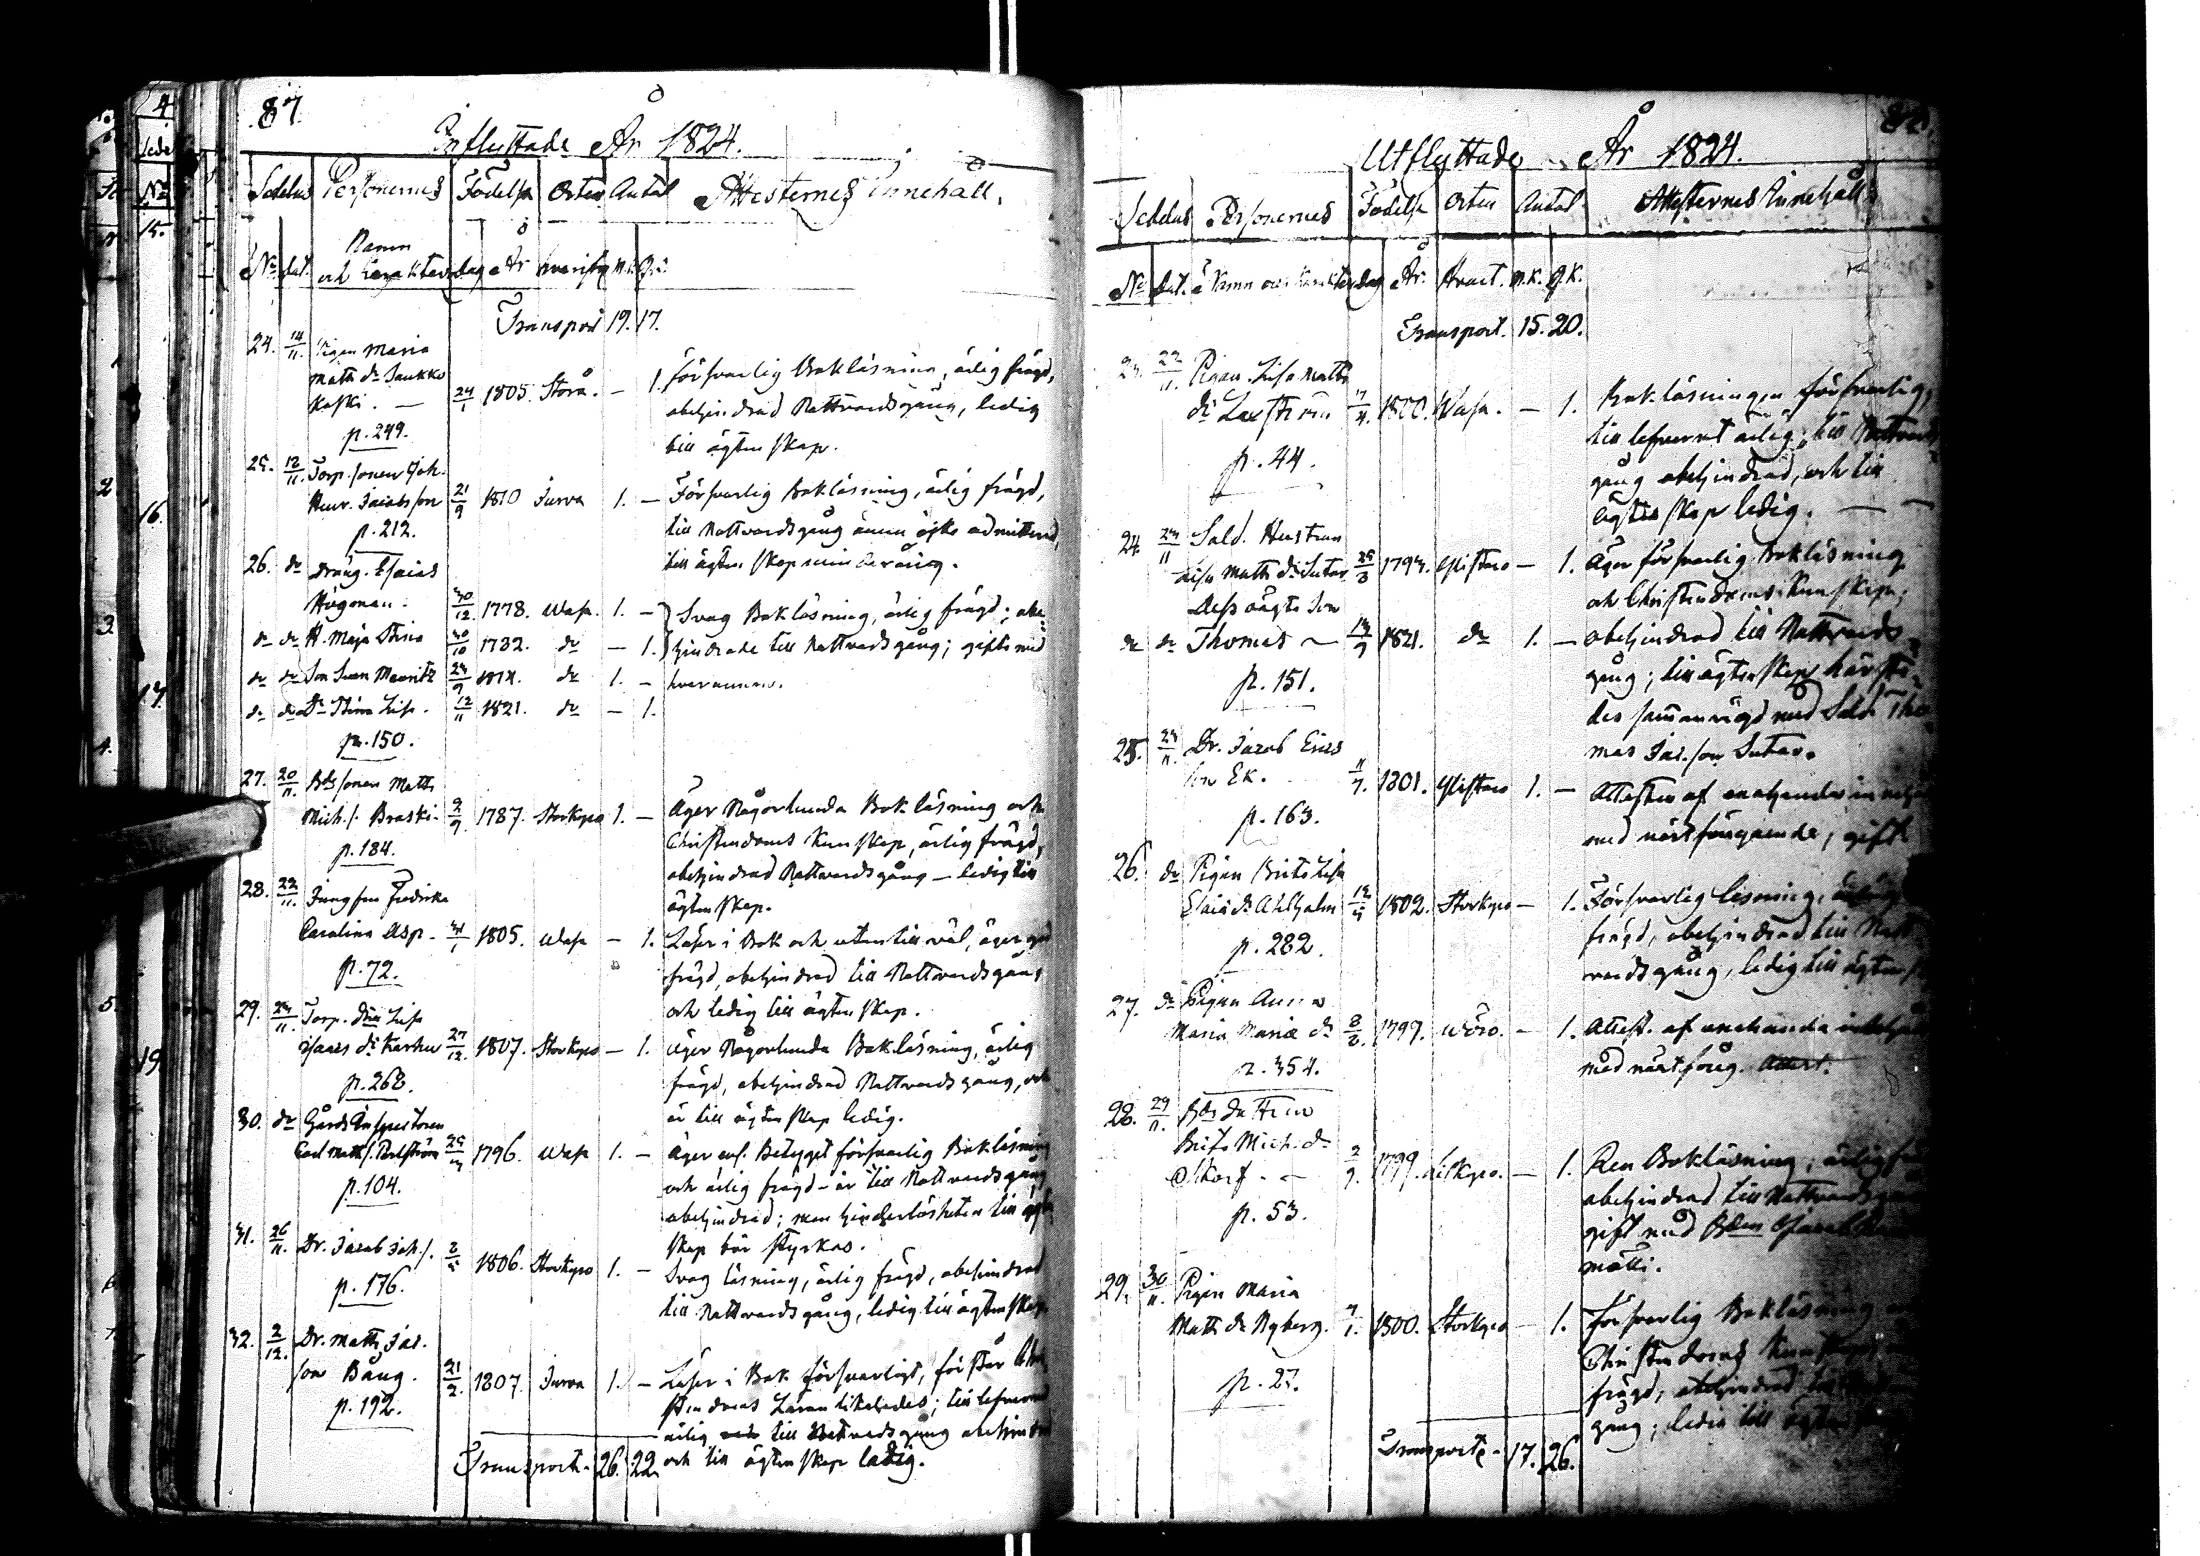 87
Inflyttade År 1824.
Sedelns Personernes Födelse Orten Antal Attesternes Innehåll.
Namn
No dat. och Carakter dag År hvarifr. m.k. q.k.
Transport 19. 17.
24. 14/11. Pigan Maria
Matts dr Saukko
koski. — 24/1 1805. Storå. — 1. Försvarlig Bokläsning, ärlig frägd,
obehindrad Nattvardsgång, ledig
till ägtenskap.
p. 249.
25. 12/11. Torp. sonen Joh.
Henr. Jacobsson 21/9 1810 Jurva 1. — Försvarlig Bokläsning, ärlig frägd,
till Nattvardsgång ännu icke admitterad,
till ägtenskap
p. 212.
26. do Dräng. Esaias
Högman. 30/12. 1778. Wasa. 1. — Svag Bokläsning, ärlig frägd; obe-
do do H. Maja Stina 30/10 1782. do — 1. hindrade till Nattvardsgång; gifta med
do do Son Sven Mauritz 24/9 1814. do 1. — hvarannan.
do do Dr Stina Lisa. 12/11 1821. do — 1.
p. 150.
27. 20/11. Bdssonen Matts
Mich.s. Braski. 2/9 1787. Storkyro 1. — Äger Någorlunda Bokläsning och
Christendoms Kunskap, ärlig frägd,
obehindrad Nattvardsgång — ledig till
ägtenskap.
p. 184.
28. 22/11. Jungfru Fredrika
Carolina Asp. 31/1 1805. Wasa — 1. Läser i Bok och utantill väl, äger god
frägd, obehindrad till Nattvardsgång
och ledig till ägtenskap.
p. 72.
29. 24/11. Torp. dtr Lisa
Isaacs dr Karhu 27/12. 1807. Storkyro — 1. Äger Någorlunda Bokläsning, ärlig
frägd, obehindrad Nattvardsgång, och
är till ägtenskap ledig.
p. 268.
30. do Gårds Inspectoren
Carl Matt.s. 1796. Wasa 1. — Äger enl. Betyget försvarlig Bokläsning
och ärlig frägd — är till Nattvardsgång
obehindrad; men hinderlösheten till ägten
skap bör styrkas.
p. 104.
31. 26/11. Dr. Jacob Joh.s. 1806. Storkyro 1. — Svag läsning, ärlig frägd, obehindrad
till Nattvardsgång, ledig till ägtenskap.
p. 176.
32. 2/12. Dr. Matts Jac.
son Bång. 21/2. 1807. Jurva 1. — Läser i Bok försvarligt, förstår Chri
stendoms Läran likaledes; till lefvernet
ärlig till Nattvardsgång obehindrad
och till ägtenskap ledig.
p. 192.
Transport. 26. 22.
Utflyttade År 1824.
Sedelns Personernes Födelse Orten Antal Attesternes Innehåll
No dat. Namn och Karakter dag År. Hvart. m.k. q.k.
Transport. 15. 20.
23. 22/11. Pigan Lisa Matts
dr Laxström 1800. Wasa. — 1. Bokläsningen försvarlig,
till lefvernet ärlig, till Nattvards
gång obehindrad, och till
ägtenskap ledig. —
p. 44.
24. 24/11 Sold. Hustrun
Lisa Matts dr Sutar 25/3 1794. Ilistaro — 1. Äger försvarlig Bokläsning
och Christendoms Kunskap,
Dess ägte Son
do do Thomas 1821. do 1. — obehindrad till Nattvards
gång; till ägtenskap härstä
des sammanvigd med Sold. Tho
mas Jac.son Sutar.
p. 151.
25. 24/11. Dr. Jacob Erics
son Ek. 11/7. 1801. Ilistaro 1. — Attesten af enahanda innehåll
med näst föregående, gift
p. 163.
26. do Pigan Brita Lisa
Esaiæ dr Ahlholm 1802. Storkyro — 1. Försvarlig läsning, ärlig
frägd, obehindrad till Natt
vardsgång, ledig till ägtenskap
p. 282.
27. do Pigan Anna
Maria Mariæ dr 1797. Wörå. — 1. Attest. af enahanda innehåll
med näst föreg. Attest.
p. 354.
28. 29/11. Bds Dottren
Brita Mich. dr
Skorf. 1799. Lillkyro. — 1. Ren Bokläsning; ärlig frägd
obehindrad till Nattvardsgång
gift med
p. 53.
29. 30/11. Pigan Maria
Matts dr Nyberg. 1800. Storkyro — 1. Försvarlig Bokläsning
Christendoms Kunskap
frägd, obehindrad till
gång; ledig till ägtenskap
p. 27.
Transport. 17. 26.